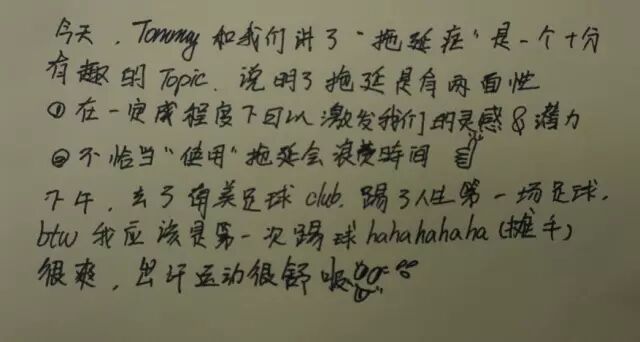 今天，Tommy和我们讲了"拖延症"是一个十分
有趣的Topic，说明了拖延是有两面性
①在一定成程度下可以激发我们的灵感&潜力
②不恰当"使用"拖延会浪费时间
下午，去了南美足球club，踢了人生第一场足球，
btw 我应该是第一次踢球hahahahaha(摊手)
很爽，出汗运动很舒服